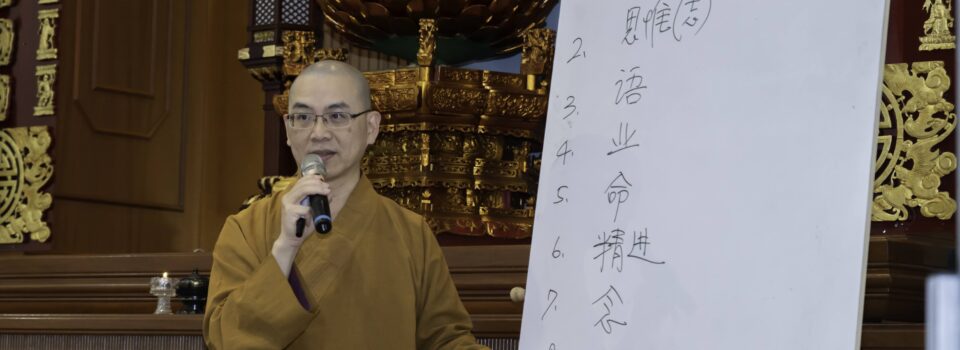 2. 思惟(志)
3. 语
4. 业
5. 命
6. 精进
7. 念